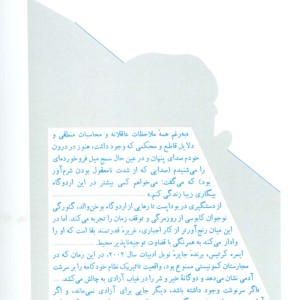 «به‌رغم همهٔ ملاحظات عاقلانه و محاسبات منطقی و
دلایل قاطع و محکمی که وجود داشت، هنوز در درون
خودم صدای پنهان و در عین حال سمج میل فروخورده‌ای
را می‌شنیدم (صدایی که از شدت نامعقول بودن شرم‌آور
بود) که می‌گفت: می‌خواهم کمی بیشتر در این اردوگاه
بیگاری زیبا زندگی کنم.»
از دستگیری در بوداپست تا رهایی از اردوگاه بوخن‌والد، گئورگی
نوجوان کابوسی از روزمرگی و توقف زمان را تجربه می‌کند. اما در
این میان رنج‌آورتر از کار اجباری، غریزه قدرتمند بقا است که او را
وادار می‌کند به همرنگی با قضاوت توجیه‌ناپذیر محیط.
ایمره کرتیس، برنده جایزه نوبل ادبیات سال ۲۰۰۲، در این رمان که در
مجارستان کمونیستی ممنوع بود، واقعیت تاثیر یک نظام خودکامه را بر سرشت
آدمی نشان می‌دهد و دوگانهٔ خیر و شر را در غیاب آزادی به چالش می‌کشد.
«اگر سرنوشت وجود داشته باشد، دیگر جایی برای آزادی نمی‌ماند، و اگر